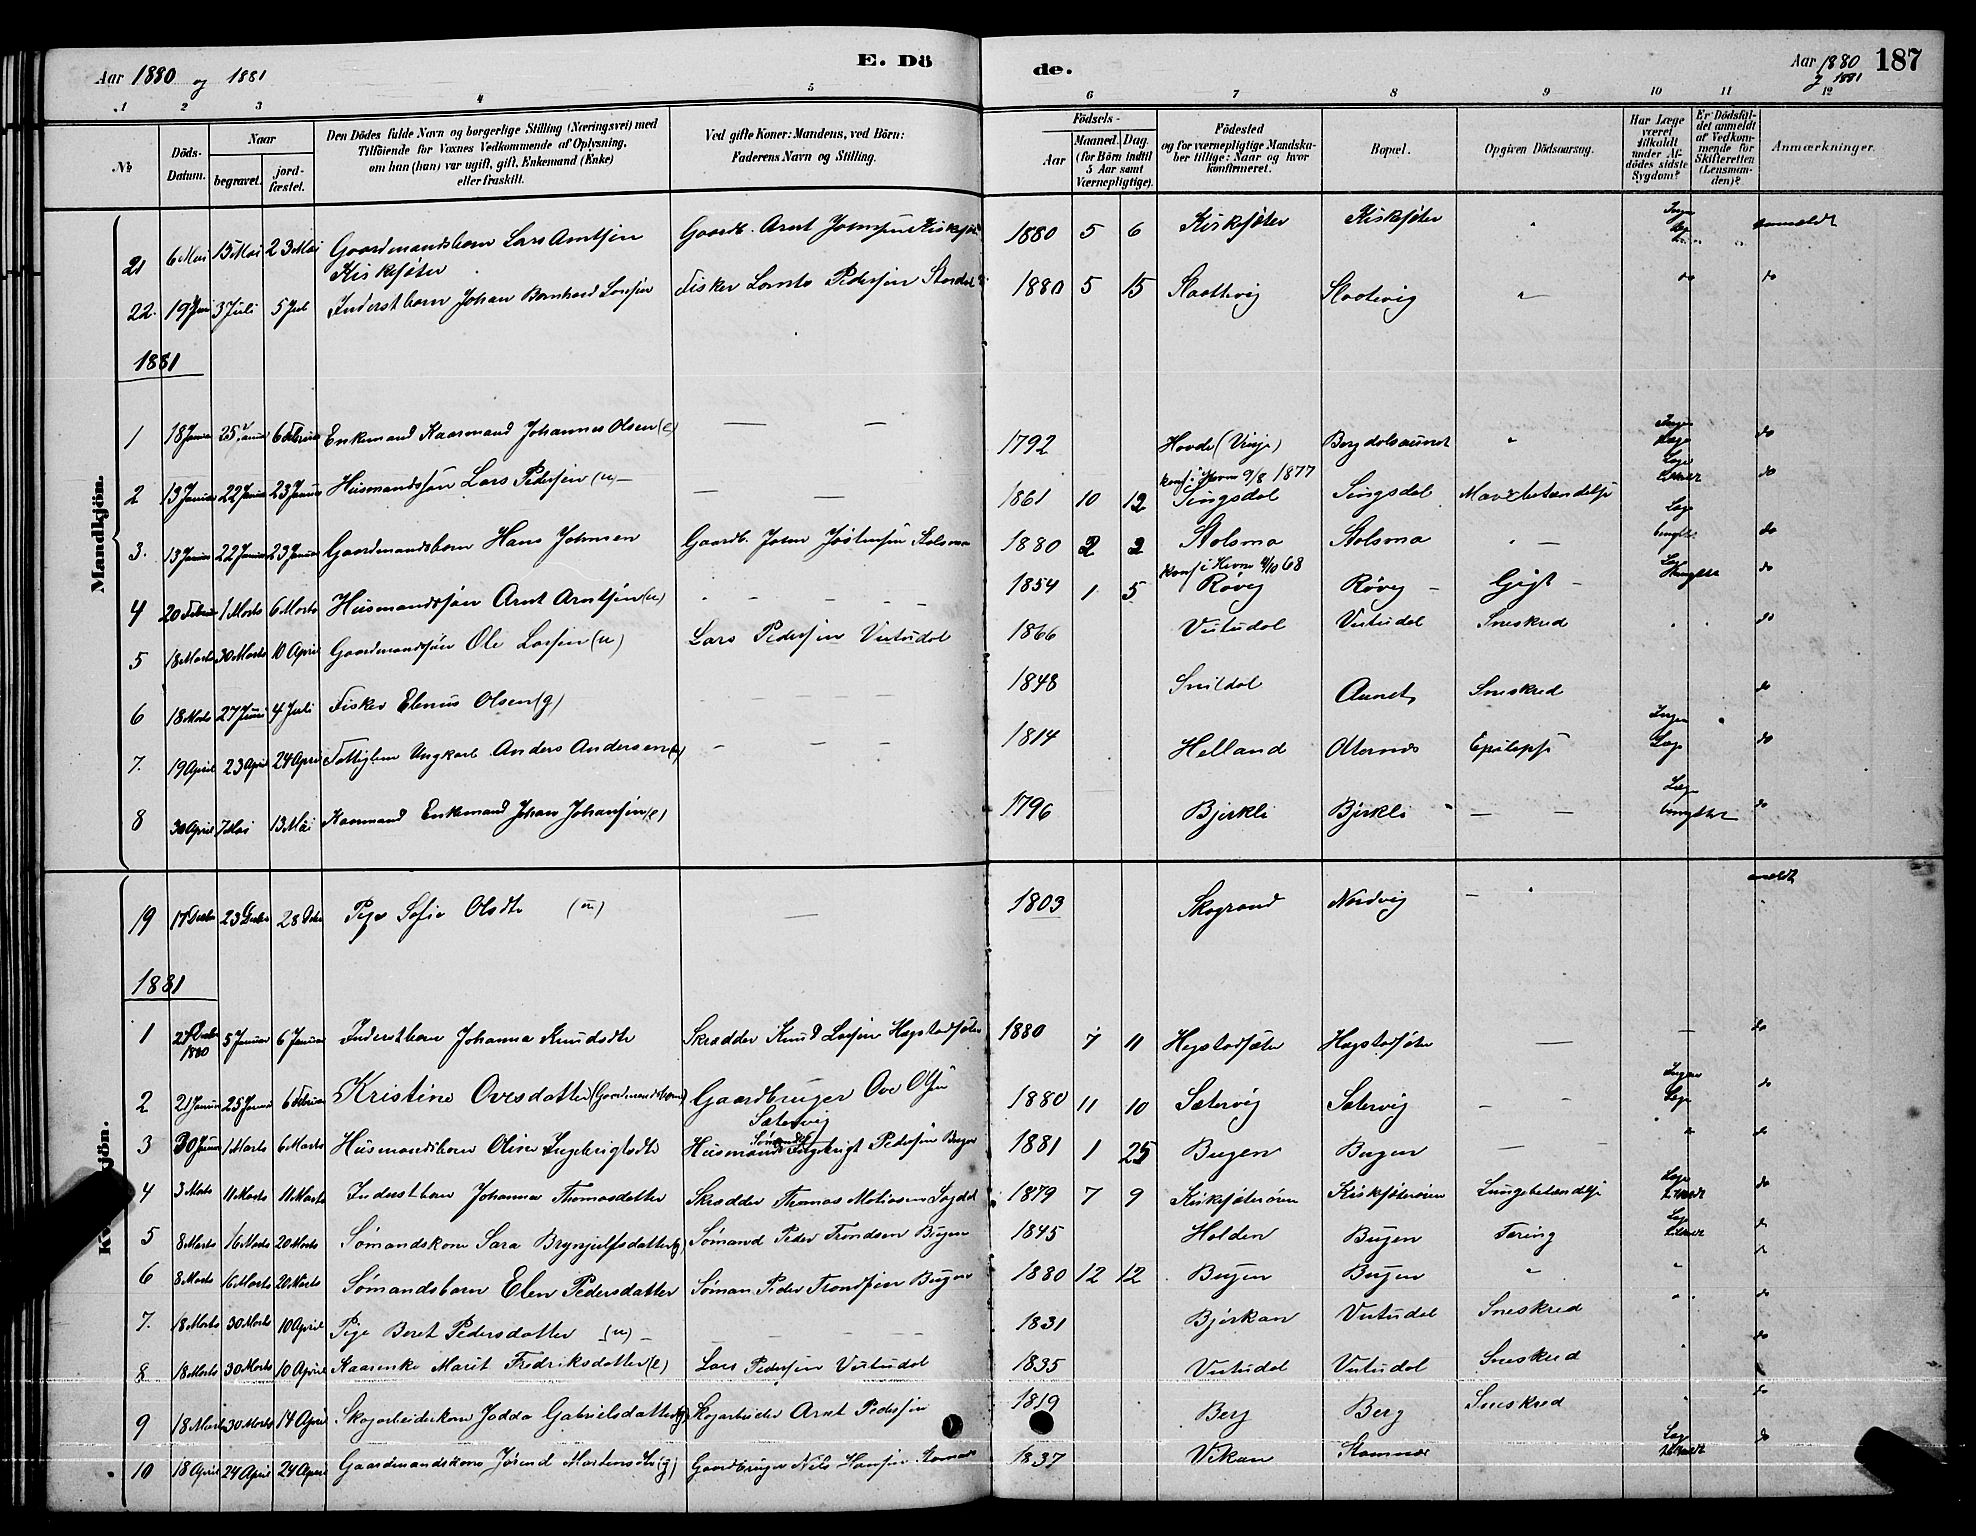 Aar 1880 og 1881
E. Dö
de.
Aar 1880 og 1881
187
1 2 3 4 5 6 7 8 9 10 11 12
№
Döds-Datum.
Naar
begravet.
jord-fæstet.
Den Dödes fulde Navn og borgerlige Stilling (Næringsvei) med Tilföiende for Voxnes Vedkommende af Oplysning, om hun (han) var ugift, gift, Enkemand (Enke) eller fraskilt.
Ved gifte Koner: Mandens, ved Börn: Faderens Navn og Stilling.
Födsels-
Aar
Maaned. Dag.
(for Börn indtil 5 Aar samt Værnepligtige).
Födested og for værnepligtige Mandskaber tillige: Naar og hvor konfirmeret.
Bopæl.
Opgiven Dödsaarsag.
Har Læge været tilkaldt under Afdödes sidste Sygdom?
Er Dödsfaldet anmeldt af Vedkommende for Skifteretten (Lensmanden)?
Anmærkninger.
Mandkjön.
21 6 Mai 15 Mai 23 Mai Gaardmandsbarn Lars Arntsen Kirksæter Gaardb. Arnt Johnsen 1880 5 6 Kirksæter Kirksæter " Ingen Læge anmeldt
22. 19 Juni 3 Juli 5 Juli Inderstbarn Johan Bernhard Larsen Fisker Lornts Pedersen 1880 5 15 Slaattevig Slaatevig " do do
1881
1 18 Januar 25 Januar 6 Februar Enkemand Kaarmand Johannes Olsen (e) — — 1792 Hovde (Vinje) Bergdalsaunet " Ingen Læge do
2 13 Januar 22 Januar 23 Januar Husmandssøn Lars Pedersen (u) — — — 1861 10 12 konf. i Hevne 9/8 1877 Singsdal Singsdal Mavebetændelse Læge do
3. 13 Januar 22 Januar 23 Januar Gaardmandsbarn Hans Johnsen Gaardb. John Jøstensen Stolsmo 1880 2 2 Stolsmo Stolsmo " — Læge benyttet do
4 20 Februar 1 Marts 6 Marts Husmandssøn Arnt Arntsen (u) - - - - - 1854 1 5 konf i Hevne 4/10 68 Røvig Røvig — Gigt — Læge do
5 18 Marts 30 Marts 10 April Gaardmandssøn Ole Larsen (u) Lars Pedersen Vutudal 1866 Vutudal Vutudal Sneskred do
6 18 Marts 27 Juni 4 Juli Fisker Elenus Olsen (g) — — — 1848 Snildal Aunet Sneskred do
7. 19 April 23 April 24 April Fattiglem Ungkarl Anders Andersen (u) — — — 1814 Helland Oternes Epilepsi Ingen Læge do
8 30 April 7 Mai 13 Mai Kaarmand Enkemand Johan Johansen (e) 1796 Bjerkli Bjerkli — — Læge benyttet do
19 17 Decbr 23 Decbr 28 Decbr Pige Sofie Olsdtr (u) — 1803 Skogrand Nordvig — " anmeldt
1881
Kvindkjön.
1 1880 5 Januar 6 Januar Inderstbarn Johanna Knudsdtr Skrædder Knud Larsen Hagstadsæter 1880 7 11 Hagstadsæter Hagstadsæter — — do
2 21 Januar 25 Januar 6 Februar Kristine Ovesdatter (Gaardmandsbarn) Gaardbruger Ove Olsen Sætervig 1880 11 10 Sætervig Sætervig — — Ingen Læge do
3 30 Januar 1 Marts 6 Marts Husmandsbarn Oline Ingebrigtsdtr Husmand Ingebrigt Pedersen Bugen 1881 1 25 Bugen Bugen — — " do
4 3 Marts 11 Marts 11 Marts Inderstbarn Johanna Thomasdatter Skrædder Thomas Matiasen 1879 7 9 Kirksæterøren Kirksæterøren Lungebetændelse Læge do
5 8 Marts 16 Marts 20 Marts Sømandskone Sara Brynjulfsdatter (g) Sømand Peder Trondsen Bugen 1845 Holden Bugen Tæring Læge
6 8 Marts 16 Marts 20 Marts Sømandsbarn Elen Pedersdatter Sømand Peder Trondsen Bugen 1880 12 12 Bugen Bugen " "
7. 18 Marts 30 Marts 10 April Pige Beret Pedersdatter (u) — — — — — 1831 Bjørkan Vutudal Sneskred " do
8 18 Marts 30 Marts 10 April Kaarenke Marit Fredriksdatter (e) Lars Pedersen Vutudal 1835 Vutudal Vutudal Sneskred " do
9 18 Marts 30 Marts 14 April Skogarbeiderkone Jodda Gabrielsdatter (g) Skogarbeider Arnt Pedersen 1819 Berg Berg Sneskred " do
10 18 April 24 April 24 April Gaardmandskone Jørend Mortensdtr (g) Gaardbruger Nils Hansen 1837 Vikan Stamnes Læge do